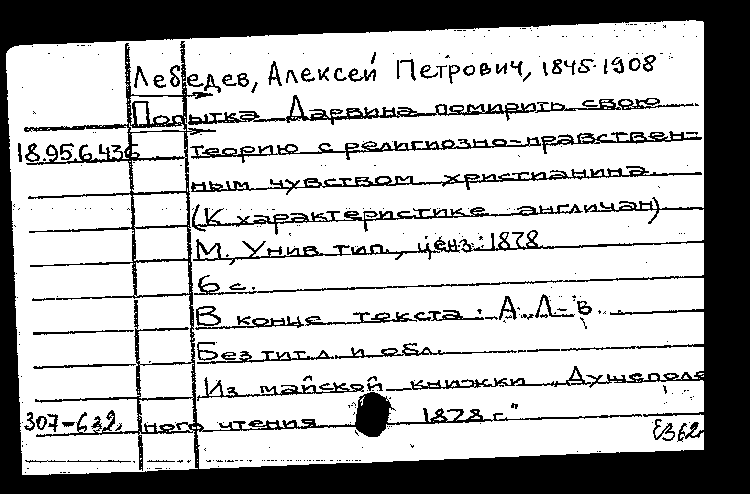 Лебедев, Алексей Петрович, 1845-1908
Попытка Дарвина помирить свою
18.95.6.436 теорию с религиозно-нравствен-
ным чувством христианина.
(К характеристике англичан)
М., Унив. тип., ценз. 1878
6 с.
В конце текста: А. Л-в.
Без тит. л. и обл.
Из майской книжки „Душеполе
307-632, ного чтения 1878 г."